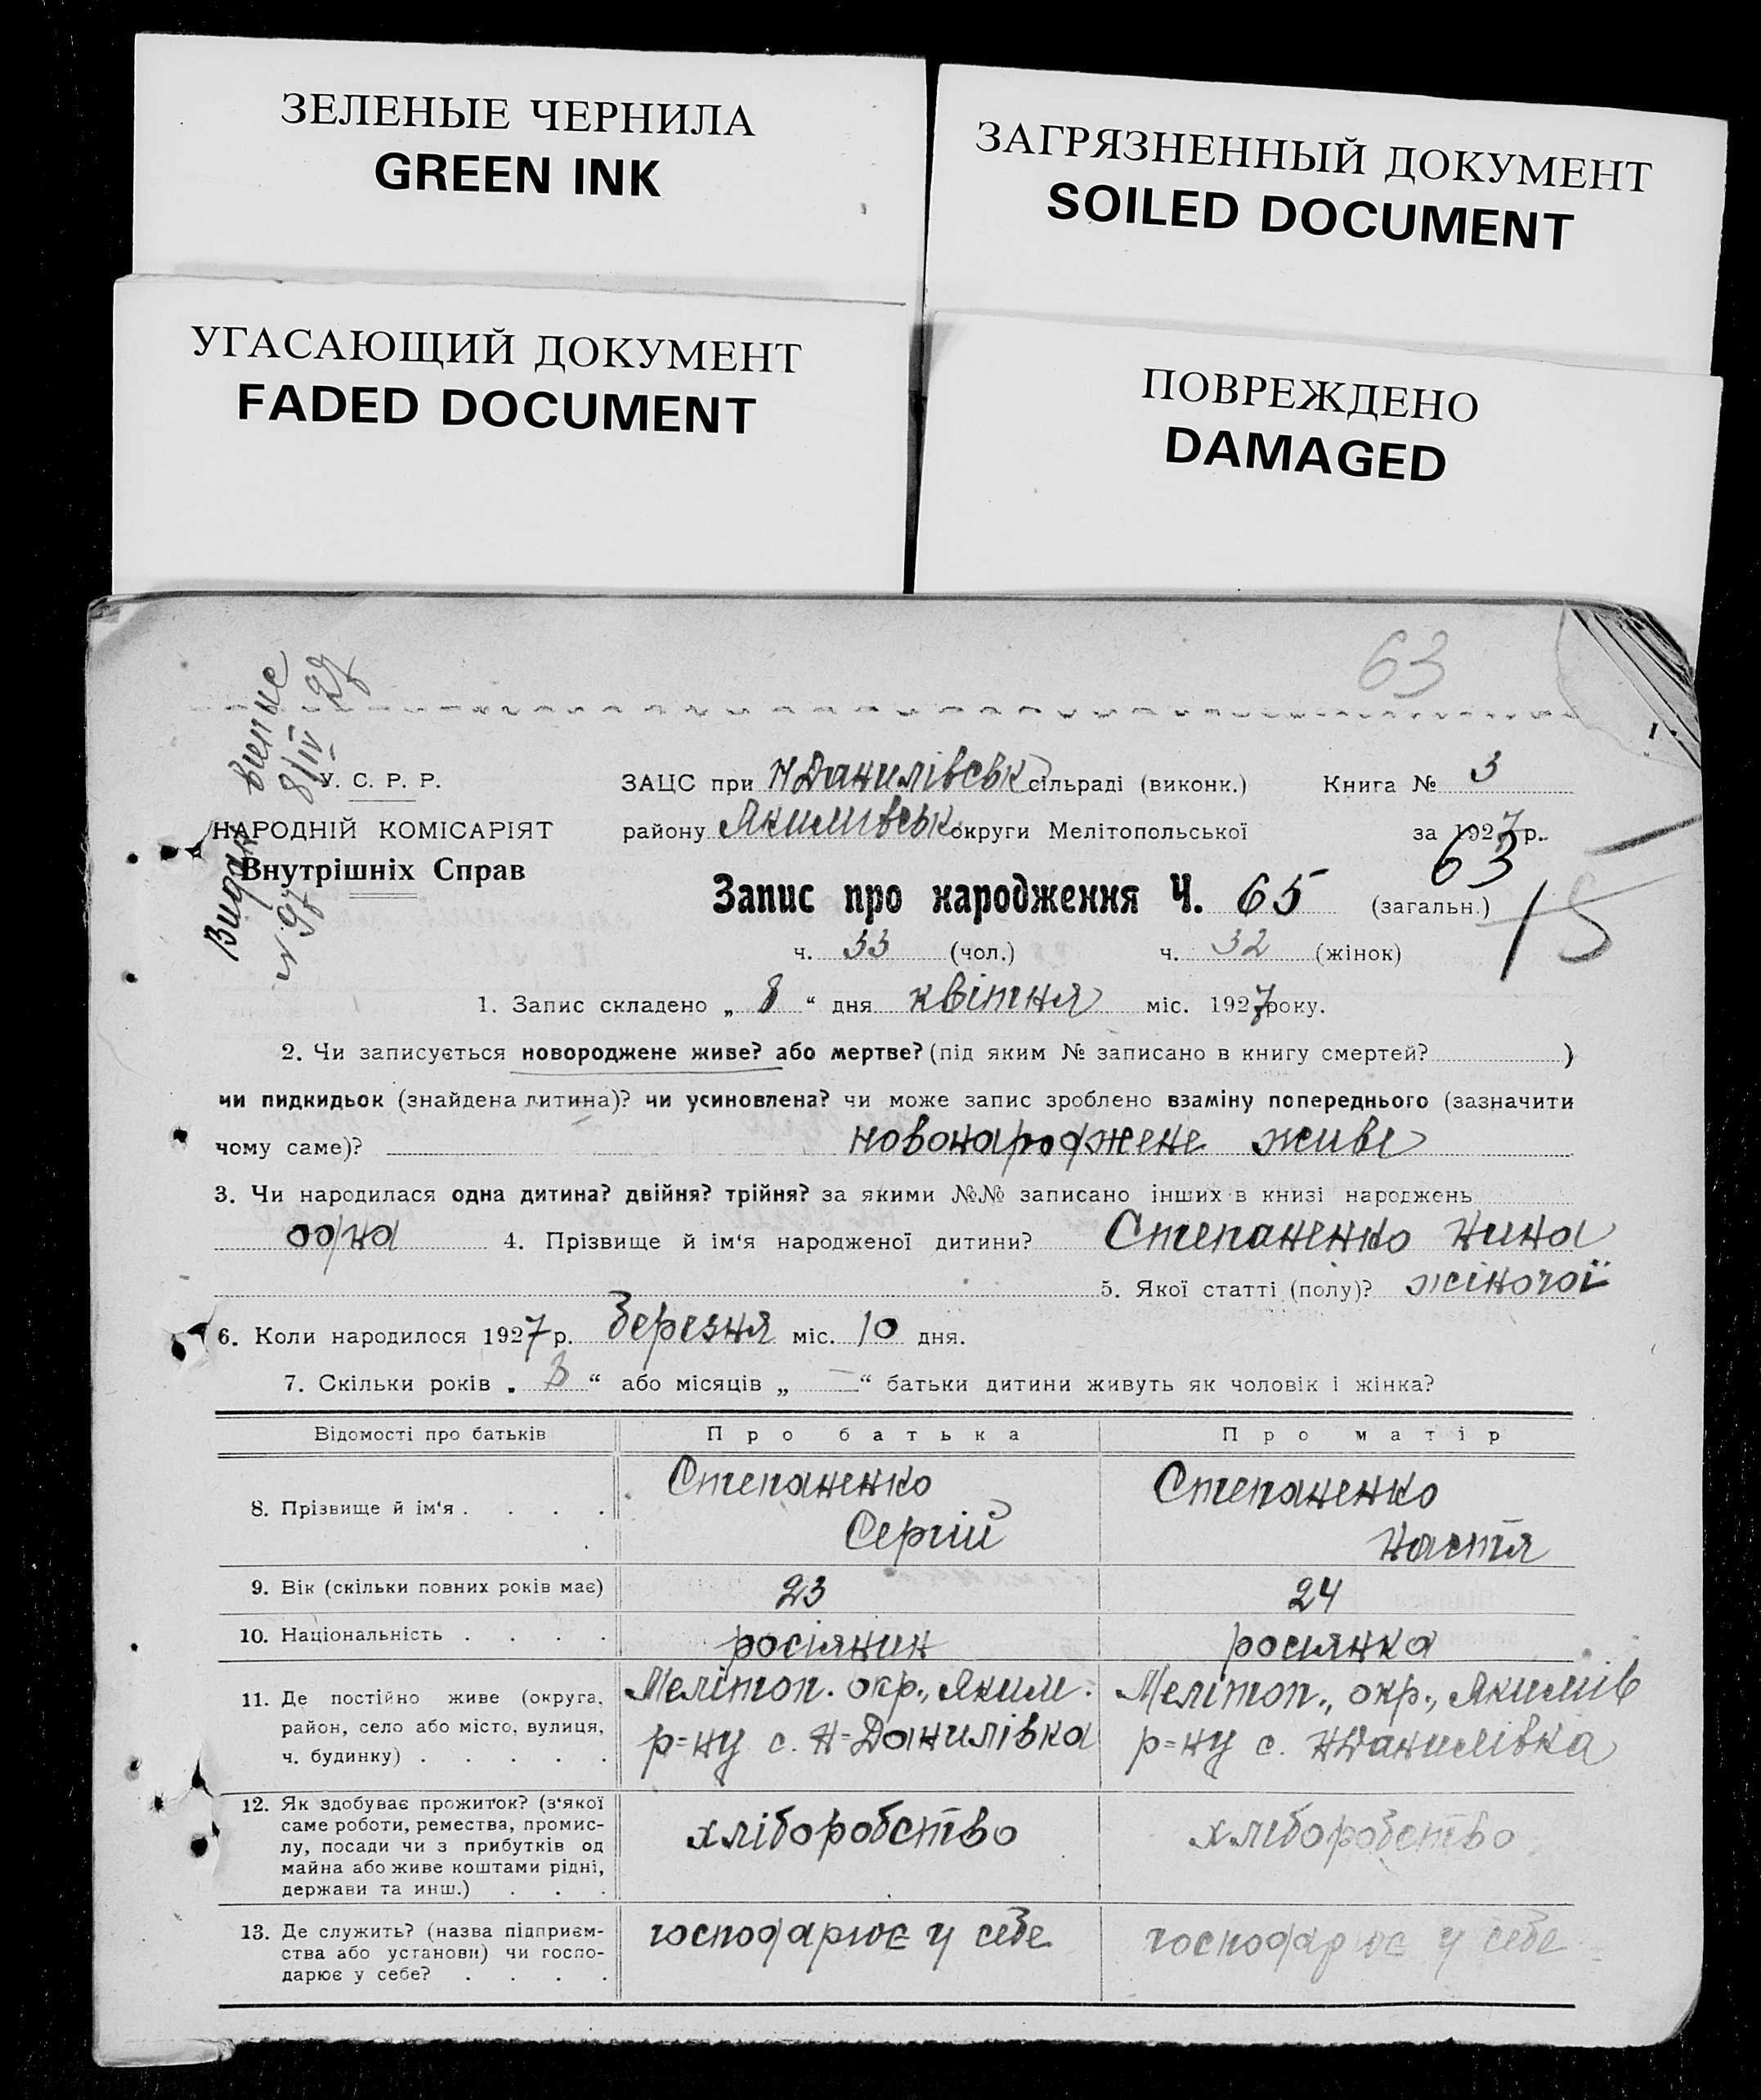 ЗЕЛЕНЫЕ ЧЕРНИЛА
GREEN INK
ЗАГРЯЗНЕННЫЙ ДОКУМЕНТ
SOILED DOCUMENT
УГАСАЮЩИЙ ДОКУМЕНТ
FADED DOCUMENT
ПОВРЕЖДЕНО
DAMAGED
63
8/IV 27
У. С. Р. Р.
НАРОДНІЙ КОМІСАРІЯТ
Внутрішніх Справ
ЗАЦС при Н Данилівськ сільраді (виконк.) Книга № 3
району Якимівськ округи Мелітопольської за 1927 р.
63
Запис про народження Ч. 65 (загальн.) 15
ч. 33 (чол.) ч. 32 (жінок)
1. Запис складено „ 8 “ дня квітня міс. 1927 року.
2. Чи записується новороджене живе? або мертве? (під яким № записано в книгу смертей? )
чи пидкидьок (знайдена дитина)? чи усиновлена? чи може запис зроблено взаміну попереднього (зазначити
чому саме)? новонароджене живе
3. Чи народилася одна дитина? двійня? трійня? за якими №№ записано інших в книзі народжень
одна 4. Прізвище й ім‘я народженої дитини? Степаненко Нина
5. Якої статті (полу)? жіночої
6. Коли народилося 1927 р. Березня міс. 10 дня.
7. Скільки років „ 3 “ або місяців „ — “ батьки дитини живуть як чоловік і жінка?
Відомості про батьків Про батька Про матір
8. Прізвище й ім‘я . . . . Степаненко Сергій Степаненко Настя
9. Вік (скільки повних років має) 23 24
10. Національність . . . . росіянин росіянка
11. Де постійно живе (округа,
район, село або місто, вулиця,
ч. будинку) . . . . .
Меліттоп. окр., Яким.
р=ну с. Н=Данилівка
Мелітоп., окр., Якимів
р=ну с. НДанилівка
12. Як здобуває прожиток? (з‘якої
саме роботи, ремества, промис-
лу, посади чи з прибутків од
майна або живе коштами рідні,
держави та инш.) . . .
хліборобство хліборобство
13. Де служить? (назва підприєм-
ства або установи) чи госпо-
дарює у себе? . . . .
господарює у себе господарює у себе